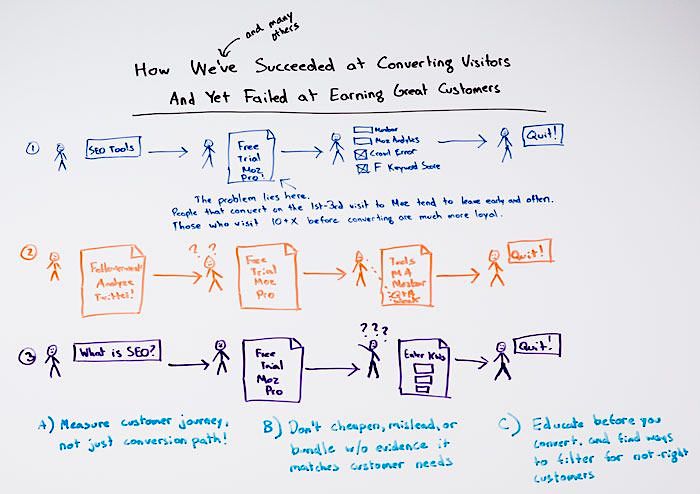 and many
others
How We've Succeeded at Converting Visitors
And Yet Failed at Earning Great Customers
1
SEO Tools
Free
Trial
Moz
Pro!
Mozbar
Moz Analytics
Crawl Error
F Keyword Score
Quit!
The problem lies here.
People that convert on the 1st-3rd visit to Moz tend to leave early and often.
Those who visit 10+x before converting are much more loyal.
2
Followerwonk
Analyze
Twitter!
? ?
Free
Trial
Moz
Pro
Tools
MA
Mozbar
Q+A
Quit!
3
What is SEO?
Free
Trial
Moz
Pro
? ? ?
Enter KWs
Quit!
A) Measure customer journey,
not just conversion path!
B) Don't cheapen, mislead, or
bundle w/o evidence it
matches customer needs
C) Educate before you
convert, and find ways
to filter for not-right
customers